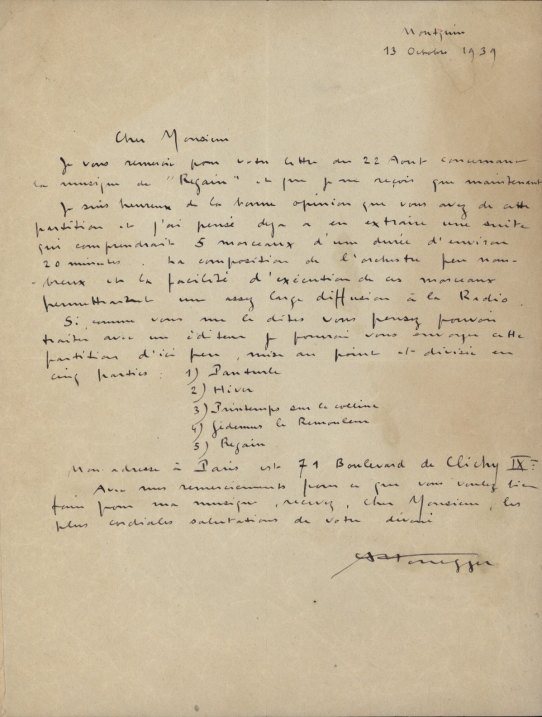 Montquin
13 Octobre 1939
Cher Monsieur
Je vous remercie pour votre lettre du 22 Aout concernant
la musique de "Regain" et que je ne reçois que maintenant
Je suis heureux de la bonne opinion que vous avez de cette
partition et j'ai pensé deja a en extraire une suite
qui comprendrait 5 morceaux d'une durée d'environ
20 minutes. La composition de l'orchestre peu nom-
-breux et la facilité d'exécution de ces morceaux
permettraient une assez large diffusion à la Radio.
Si, comme vous me le dites vous pensez pouvoir
traiter avec un éditeur je pourrai vous envoyer cette
partition d'ici peu, mise au point et divisée en
cinq parties : 1) Panturle
2) Hiver
3) Printemps sur la colline
4) Gédemus le Remouleur
5) Regain
Mon adresse à Paris est 71 Boulevard de Clichy IXe
Avec mes remerciements pour ce que vous voulez bien
faire pour ma musique, recevez, cher Monsieur, les
plus cordiales salutations de votre dévoué
AHonegger